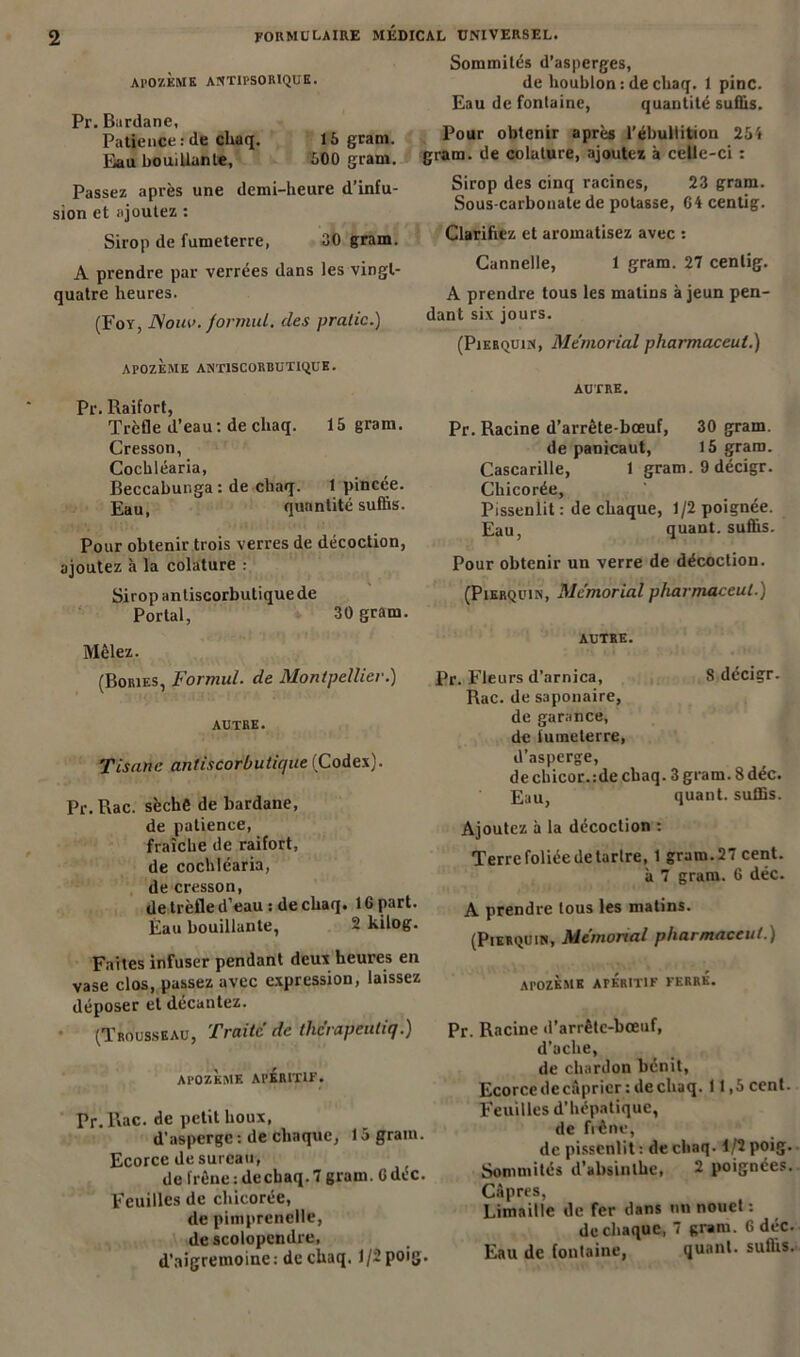 2 FORMULAIRE MÉDICAL UNIVERSEL.
APOZÈME ANTIPSORIQUE.
Pr. Bardane,
Patience : de chaq. 15 gram.
Eau bouillante, 500 gram.
Passez après une demi-heure d'infu-
sion et ajoutez :
Sirop de fumeterre, 30 gram.
A prendre par verrées dans les vingt-
quatre heures.
(Foy, Nouv. formul. des pratic.)
APOZÈME ANTISCORBUTIQUE.
Pr. Raifort,
Trèfle d'eau : de chaq. 15 gram.
Cresson,
Cochléaria,
Beccabunga : de chaq. 1 pincée.
Eau, quantité suffis.
Pour obtenir trois verres de décoction,
ajoutez à la colature :
Sirop antiscorbutique de
Portal, 30 gram.
Mêlez.
(Bories, Formul. de Montpellier.)
AUTRE.
Tisane antiscorbutique (Codex).
Pr. Rac. sèchê de bardane,
de patience,
fraîche de raifort,
de cochléaria,
de cresson,
de trèfle d'eau : de chaq. 16 part.
Eau bouillante, 2 kilog.
Faites infuser pendant deux heures en
vase clos, passez avec expression, laissez
déposer et décantez.
(Trousseau, Traité de thérapeutiq.)
APOZÈME APÉRITIF.
Pr. Rac. de petit houx,
d'asperge : de chaque, 15 gram.
Ecorce de sureau,
de frêne : de chaq. 7 gram. 6 déc.
Feuilles de chicorée,
de pimprenelle,
de scolopendre,
d'aigremoine : de chaq. 1/2 poig.
Sommités d'asperges,
de houblon : de chaq. 1 pinc.
Eau de fontaine, quantité suffis.
Pour obtenir après l'ébullition 254
gram. de colature, ajoutez à celle-ci :
Sirop des cinq racines, 23 gram.
Sous-carbonate de potasse, 64 centig.
Clarifiez et aromatisez avec :
Cannelle, 1 gram. 27 centig.
A prendre tous les matins à jeun pen-
dant six jours.
(Pierquin, Mémorial pharmaceut.)
AUTRE.
Pr. Racine d'arrête-bœuf, 30 gram.
de panicaut, 15 gram.
Cascarille, 1 gram. 9 décigr.
Chicorée,
Pissenlit : de chaque, 1/2 poignée.
Eau, quant. suffis.
Pour obtenir un verre de décoction.
(Pierquin, Mémorial pharmaceut.)
AUTRE.
Pr. Fleurs d'arnica, 8 décigr.
Rac. de saponaire,
de garance,
de fumeterre,
d'asperge,
de chicor. : de chaq. 3 gram. 8 déc.
Eau, quant. suffis.
Ajoutez à la décoction :
Terre foliée de tartre, 1 gram. 27 cent.
à 7 gram. 6 déc.
A prendre tous les matins.
(Pierquin, Mémorial pharmaceut.)
APOZÈME APÉRITIF FERRÉ.
Pr. Racine d'arrête-bœuf,
d'ache,
de chardon bénit,
Ecorce de câprier : de chaq. 11,5 cent.
Feuilles d'hépatique,
de frêne,
de pissenlit : de chaq. 1/2 poig.
Sommités d'absinthe, 2 poignées.
Câpres,
Limaille de fer dans un nouet :
de chaque, 7 gram. 6 déc.
Eau de fontaine, quant. suffis.